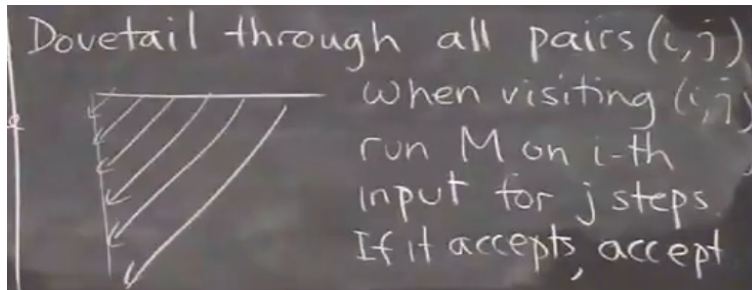 Dovetail through all pairs (i,j)
when visiting (i,j)
run M on i-th
input for j steps.
If it accepts, accept